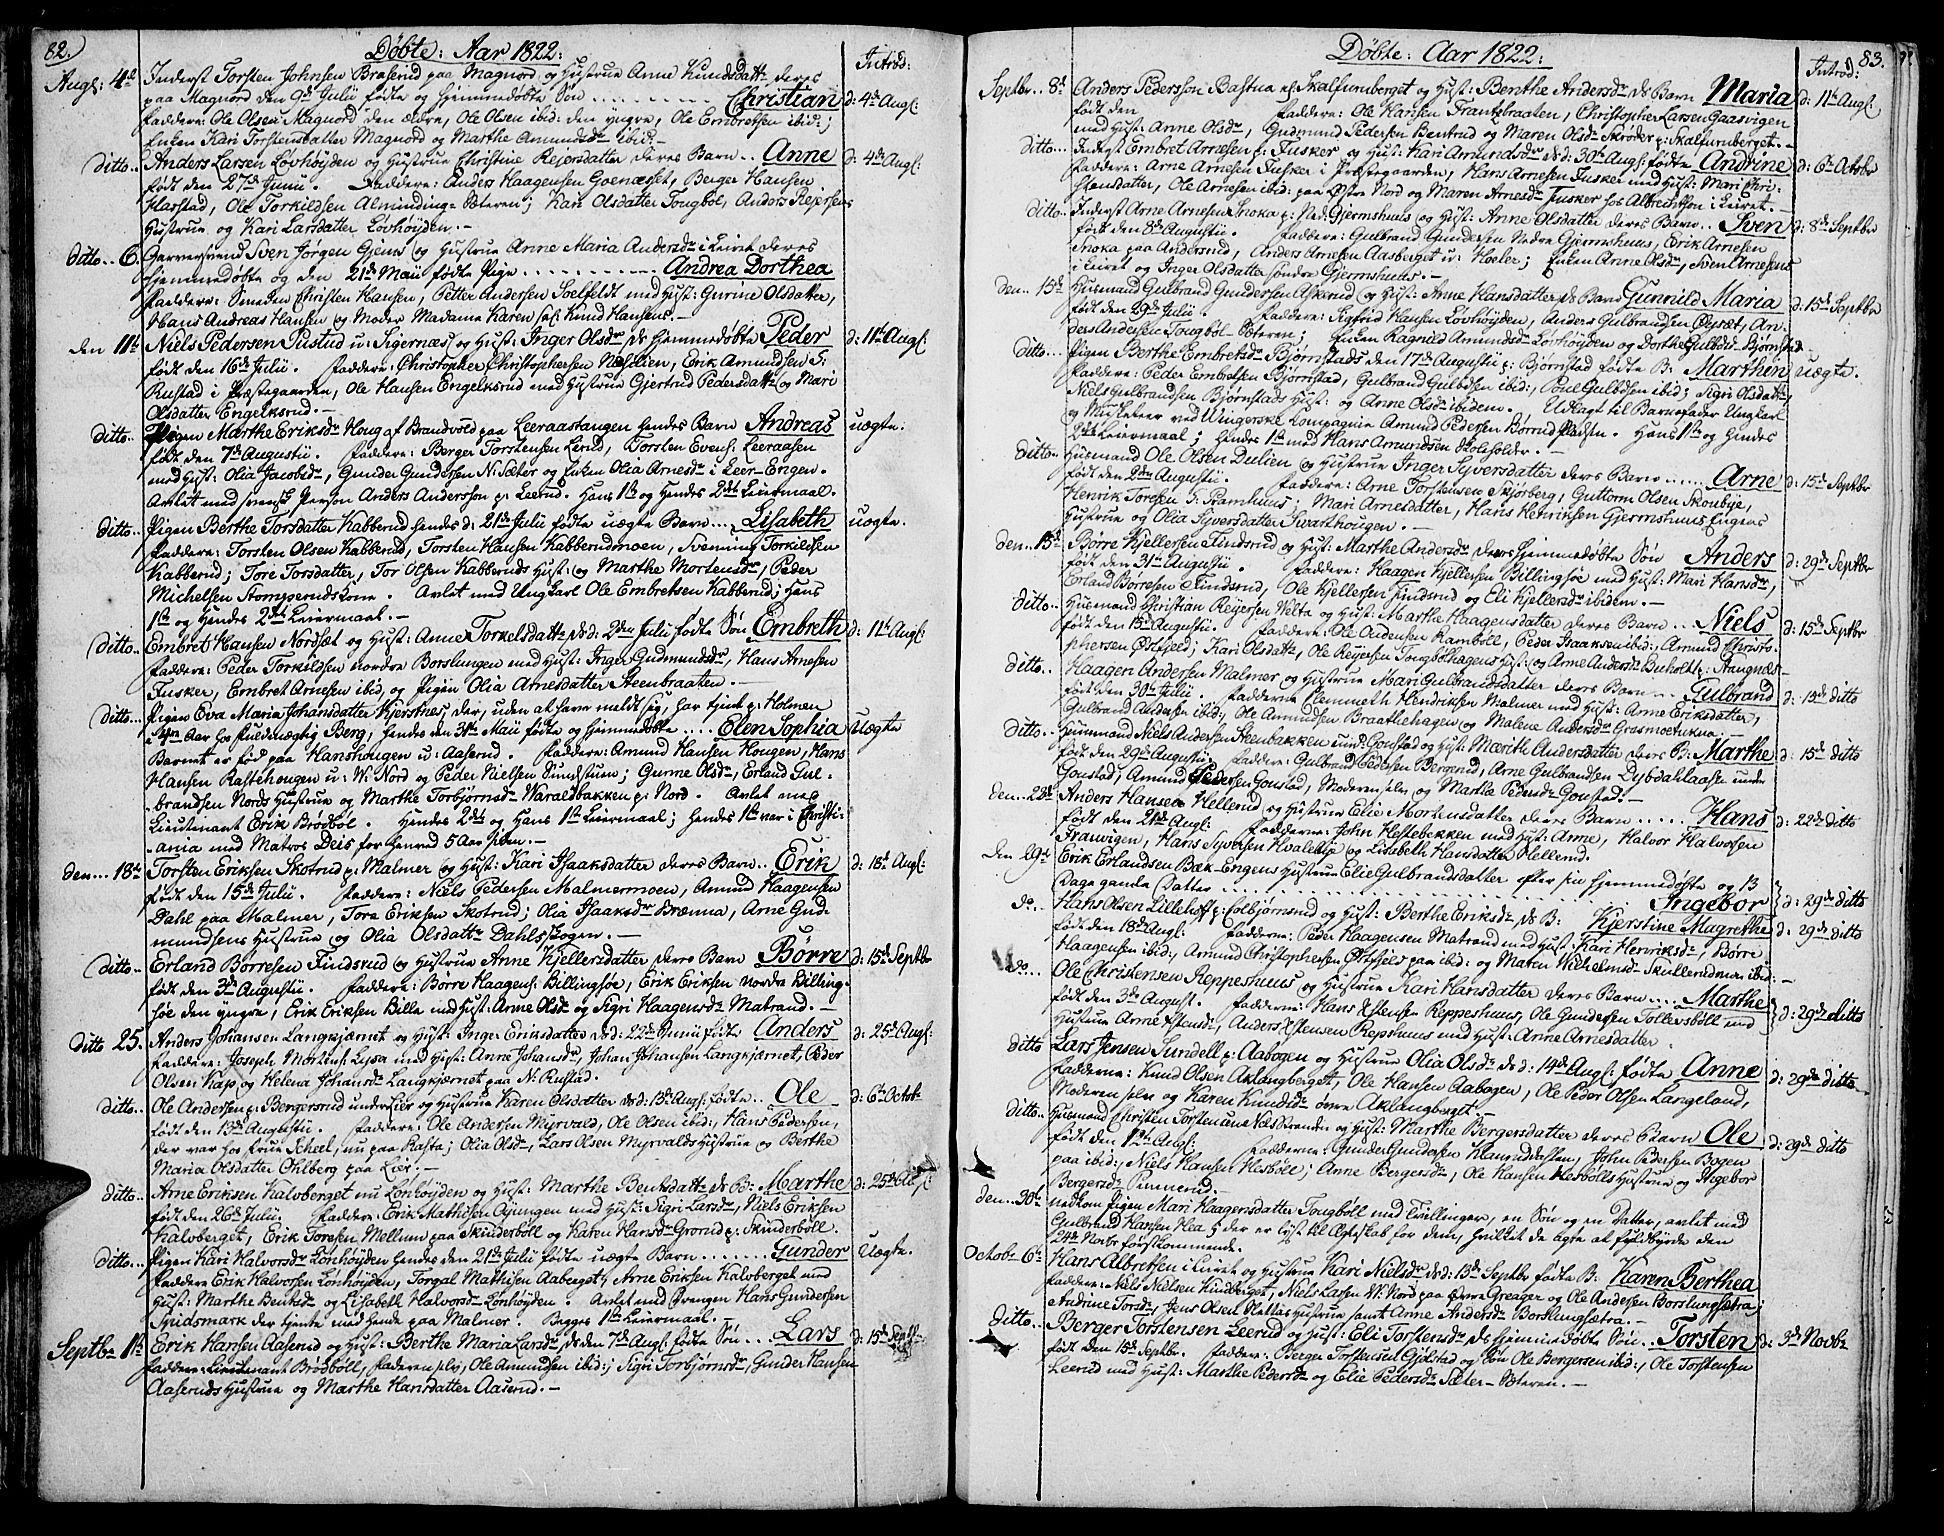 82.
Døbte: Aar 1822:
Introd:
Augs: 4de Inderst Torsten Johnsen Braserud paa Magnord og Hustrue Anne Knudsdattr deres
paa Magnord den 9de Julii fødte og hjemmedøbte Søn Christian d: 4de Augs:
Faddere: Ole Olsen Magnord den ældre, Ole Olsen ibid: den yngre, Ole Embretsen ibid:;
Enken Kari Torstensdatter Magnord og Marthe Amundsdr ibid:-
ditto.. Anders Larsen Løvhøyden og Hustrue Christine Rejersdatter deres Barn .. Anne d: 4de Augs:
født den 27de Junii. Faddere: Anders Haagensen Goenæsset, Berger Hansen
Harstad, Ole Torkildsen Alminding-Sæteren; Kari Olsdatter Tougbøl, Anders Rejersens
Hustrue og Kari Larsdatter Løvhøyden.-
ditto.. 6. Garversvend Sven Jørgen Gjens og Hustrue Anne Maria Andersdr i Leiret deres
hjemmedøbte og den 21de Maii fødte Pige Andrea Dorthea
Faddere: Smeden Christen Hansen, Petter Andersen Soelfeldt med Hust: Gurine Olsdatter,
Hans Andreas Hansen og Moder Madame Karen sal: Knud Hansens.-
den 11te Niels Pedersen Pustud u: Sigernæs og Hust: Inger Olsdr ds hjemmedøbte Peder d: 11te Augs:
født den 16de Julii. Faddere: Christopher Christophersen Næslien, Erik Amundsen S:
Rustad i Præstegaarden, Ole Hansen Engelksrud med Hustrue Gjertrud Pedersdattr og Mari
Olsdatter Engelksrud.-
ditto.. Pigen Marthe Eriksdr Houg af Brandvold paa Leeraastangen hendes Barn Andreas uægte.
født den 7de Augustii. Faddere: Berger Torstensen Lerud, Torsten Evens: Leeraasen
med Hust: Olia Jacobsdr, Gunder Gundersen N: Sæter og Enken Olia Arnesdr i Leer-Engen.
Avlet med svensk Person Anders Andersson p: Leerud. Hans 1ste og Hendes 2det Leiermaal.
ditto.. Pigen Berthe Torsdatter Kabberud hendes d: 21de Julii fødte uægte Barn ... Lisabeth uægte.
Faddere: Torsten Olsen Kabberud, Torsten Hansen Kabberudmoen, Svenning Torkildsen
Kabberud; Tore Torsdatter, Tor Olsen Kabberuds Hust: og Marthe Mortensdr, Peder
Michelsen Stomperudskone. Avlet med Ungkarl Ole Embretsen Kabberud; hans
1ste og Hendes 2det Leiermaal.-
ditto.. Embret Hansen Nordsæt og Hust: Anne Torkelsdattr ds d: 2den Julii fødte Søn Embreth d: 11te Augs:
Faddere: Peder Torkildsen nordre Borslungen med Hust: Inger Gudmundsdr, Hans Arnesen
Fusker, Embret Arnesen ibid, og Pigen Olia Arnesdatter Steenbraaten.-
ditto.. Pigen Eva Maria Johansdatter Kjerstnes, der, uden at have meldt sig, har tjent p: Holmen
i Aar hos Fuldmægtig Berg, hendes den 31te Maii fødte og hjemmedøbte .... Elen Sophia Uægte
Barnet er fød paa Hanshougen u: Aaserud. Faddere: Amund Hansen Hougen, Hans
Hansen Raftehougen u: W: Nord og Peder Nielsen Sundstuen; Gurine Olsdr, Erland Gul-
brandsen Nords Hustrue og Marthe Torbjørnsdr Waraldbakken p: Nord. Avlet med
Lieutenant Erik Brødbøl. Hendes 2det og Hans 1ste Leiermaal; hendes 1ste var i Christi-
ania med Matros Deis for henved 5 Aar siden.-
den... 18de Torsten Eriksen Skotrud p: Malmer og Hust: Kari Isaaksdatter deres Barn .. Erik d: 18de Augs:
født den 15de Julii. Faddere: Niels Pedersen Malmermoen, Amund Haagensen
Dahl paa Malmer, Tore Eriksen Skotrud; Olia Isaaksdr Brænna, Arne Gud-
mundsens Hustrue og Olia Olsdattr Dahlskogen.-
ditto.. Erland Børresen Findsrud og Hustrue Anne Kjellersdatter deres Barn Børre d: 15de Septbr
født den 3de Augustii. Faddere: Børre Haagens: Billingsøe, Erik Eriksen nordre Billing-
søe den yngre, Erik Eriksen Bille med Hust: Anne Olsdr og Sigri Haagensdr Matrand.-
ditto 25. Anders Johansen Langkjærnet og Hust: Inger Eriksdatter ds d: 22de Junii født Anders d: 25de Augs:
Faddere: Joseph Mortens: Lysa med Hust: Anne Johansdr, Johan Johansen Langkjærnet, Peder
Olsen Kap og Helena Johansdr Langkjærnet paa N: Rustad.
ditto.. Ole Andersen p: Bergersrud under Lier og Hustrue Karen Olsdatter ds d: 13de Augs: fødte .. Ole d: 6te Octobr
født den 13de Augustii. Faddere: Ole Andersen Myrvald, Ole Olsen ibid:, Hans Pedersen,
der var hos Frue Scheel, nu paa Rafta; Olia Olsdr, Lars Olsen Myrvalds Hustrue og Berthe
Maria Olsdatter Ohlberg paa Lier.-
ditto.. Arne Eriksen Kalvberget nu Lønhøyden og Hust: Marthe Bentsdattr ds B: Marthe d: 25de Augs:
født den 26de Julii. Faddere: Erik Mathisen Øyungen med Hust: Sigri Larsdr, Niels Eriksen
Kalvberget, Erik Toresen Mellum paa Skinderbøll og Karen Hansdr Grorud p: Skinderbøll.
ditto... Pigen Kari Halvorsdr Lønhøyden hendes den 21de Julii fødte uægte Barn ....... Gunder Uægte.
Faddere Erik Halvorsen Lønhøyden, Torgal Mathisen Aaberget; Arne Eriksen Kalvberget med
Hust: Marthe Bentsdr og Lisabeth Halvorsdr Lønhøyden. Avlet med Drengen Hans Gundersen
Spidsmark der tjente med hende paa Malmer. Begges 1ste Leiermaal.-
Septbr 1ste Erik Hansen Aaserud og Hust: Berthe Maria Larsdr ds den 7de Augs: fødte Søn ... Lars d: 15de Septbr
Faddere: Lieutenant Brødbøll, Faderen selv, Ole Amundsen ibid:; Sigri Torbjørnsdr, Gunder Hansen
Aaseruds Hustrue og Marthe Hansdatter Aaserud.-
83.
Døbte: Aar 1822:
Introd:
Septbr.. 8de Anders Pedersson Bastua af Skalfurnberget og Hust: Benthe Andersdr ds Barn Maria d: 11te Augs:
født den Faddere: Ole Hansen Frantzbraaten, Christopher Larsen Gaasvigen
med Hust: Anne Olsdr, Gudmund Pedersen Bentrud og Maren Olsdr Skrøder p: Skalfurnberget.-
ditto... Indtgst Embret Arnesen p: Fusker og Hust: Kari Amundsdr ds d: 30te Augs: fødte Andrine d: 6te Octobr
Faddere: Arne Arnesen Fusker i Præstegaarden, Hans Arnesen Fusker med Hust: Mari Chri-
stensdatter, Ole Arnesen ibid: paa Østre Nord og Maren Arnesdr Fusker hos Albrechtson i Leiret.-
ditto.. Inderst Arne Arnesen Snoka p: Ned: Gjermshuus og Hust: Anne Olsdatter deres Barn .. Sven d: 8de Septbr
født den 8de Augustii. Faddere: Gulbrand Gundersen Nedre Gjermshuus, Erik Arnesen
Snoka paa Andersrud, Anders Arnesen Aasberget u: Hoeler; Enken Anne Olsdr, Sven Arnesens
i Leiret og Inger Olsdatter søndre Gjermshuus.-
den.. 15de Huusmand Gulbrand Gundersen Askerud og Hust: Anne Hansdatter ds Barn Gunnild Maria d: 15de Septbr
født den 29de Julii. Faddere: Sigfrid Hansen Løvhøyden, Anders Gulbrandsen Øeysæt, An-
ders Andersen Tougbøl-Sæteren; Enken Ragnild Amundsdr Løvhøyden og Dorthe Gulbdr Bjørnstad
ditto.. Pigen Berthe Embretsdr Bjørnstads den 17de Augustii p: Bjørnstad fødte B: Marthin uægte.
Faddere: Peder Embretsen Bjørnstad, Gulbrand Gulbdsen ibid:, Poul Gulbdsen ibid; Sigri Olsdattr,
Niels Gulbrandsen Bjørnstads Hust: og Anne Olsdr ibidem. Udlagt til Barnefader Ungkarl
og Musketeer ved Wingerske Compagnie Amund Pedersen Børrud pladsen. Hans 1ste og hendes
2det Leiermaal; hendes 1ste med Hans Amundsen Skoleholdr.-
ditto.. Huusmand Ole Olsen Dulien og Hustrue Inger Syversdatter deres Barn ..... Arne d: 15de Septbr
født den 2den Augustii. Faddere: Arne Torstensen Skjørberg, Guttorm Olsen Skoubye,
Henrik Toresen S: Framhuus; Mari Arnesdatter, Hans Henriksen Gjermshuus Engens
Hustrue og Olia Syversdatter Svarthougen.-
den.. 15de Børre Kjellersen Findsrud og Hust: Marthe Andersdr deres hjemmedøbte Søn Anders d: 29de Septbr
født den 31te Augustii. Faddere: Haagen Kjellersen Billingsøe med Hust: Mari Hansdr,
Erland Børresen Findsrud, Ole Kjellersen Findsrud og Eli Kjellersdr ibidem.-
ditto.. Huusmand Christian Reyersen Welta og Hust: Marthe Haagensdatter deres Barn .. Niels d: 15de Septbr
født den 15de Augustii. Faddere: Ole Audensen Rambøll, Peder Isaaksen ibid:, Amund Christo-
phersen Østfjeld; Kari Olsdattr, Ole Reyersen Tougbølhagens Hust: og Arne Andersdr Buholdt p: Strangnæs-
ditto.. Haagen Andersen Malmer og Hustrue Mari Gulbrandsdatter deres Barn ... Gulbrand d: 15de ditto
født den 30te Julii. Fadderne Clemmeth Hendriksen Malmer med Hust: Arne Eriksdatter,
Gulbrand Andersen ibid:, Ole Amundsen Braathehagen og Malene Andersdr Græsmoetukna.-
ditto.. Huusmand Niels Andersen Steenbakken und: Gonstad og Hust: Marthe Andersdatter deres B: Marthe d: 15de ditto
født den 29de Augustii. Faddere: Gulbrand Pedersen Bergerud, Arne Gulbrandsen Dybdahlaasen under
Gonstad, Amund Pedersen Gonstad, Moderen selv og Marthe Pedersdr Gonstad.-
den.. 22de Anders Hansen Hellerud og Hustrue Elie Mortensdatter deres Barn ..... Hans d: 22de ditto
født den 21de Augs: Fadderne: John Hestebekken med Hust: Arne, Halvor Halvorsen
Travigen, Hans Syversen Hvalebye og Lisabeth Hansdatter Hellerud.
den 29de Erik Erlandsen Bæk-Engens Hustrue Elie Gulbrandsdatter efter sin hjemmedøbte og 13
Dage gamle Datter Ingebor d: 29de ditto
do.. Hans Olsen Lillehof p: Colbjørnsrud og Hust: Berthe Eriksdr ds B: Kjerstine Magrethe d: 29de ditto
født den 18de Augs: Faddere: Peder Haagensen Matrand med Hust: Kari Henriksdr, Børre
Haagensen ibid:, Amund Christophersen Østfjeld paa ibid: og Maren Wilhelmsdr Skullerudmoen ibid:-
do... Ole Christensen Reppeshuus og Hustrue Kari Hansdatter deres Barn .... Marthe d: 29de ditto
født den 3de August. Faddere: Hans Xstensen Reppeshuus, Ole Gundersen Tollevsbøll med
Hustrue Arne Xstensdr, Anders Xstensen Reppshuus med Hust: Anne Arnesdatter.
ditto Lars Jensen Sundell p: Aabogen og Hustrue Olia Olsdr ds d: 14de Augs: fødte Anne d: 29de ditto
Fadderne: Knud Olsen Aklangberget, Ole Hansen Aabogen, Ole Peder Olsen Langeland,
Moderen selv og Karen Knudsdr øvre Aklangberget.-
ditto.. Huusmand Christen Torstensen Næstranden og Hustrue Marthe Bergersdatter deres Barn Ole d: 29de ditto
født den 12te Augs: Fadderne: Gunder Gundersen Klanderesten, John Pedersen Bogen
paa ibid:, Niels Hansen Hesbøll; Anne Bergersdr, Ole Hansen Hesbølls Hustrue og Ingebor
Bergersdr Pinnerud.-
den.. 30te nedkom Pigen Mari Haagensdatter Tougbøll med Tvillinger, en Søn og en Datter, avlet med
Gulbrand Hansen Hea; der er lyst til Ægteskab for dem, hvilket de agte at fuldbyrde den
24de Novbr førstkommende.
Octobr 6te Hans Albretsen i Leiret og Hustrue Kari Nielsdr ds d: 13de Septbr fødte B. Karen Berthea
Faddere: Niels Nielsen Kindberget, Niels Larsen W: Nord paa Øvre Greager og Ole Andersen Borslungsætra;
Andrine Torsdr, Jens Olsen Slettas Hustrue samt Anne Andersdr Borslungsætra.-
ditto.. Berger Torstensen Leerud og Hust: Eli Torstensdr ds hjemmedøbte Søn ... Torsten d: 3de Novbr
født den 18de Septbr. Faddere: Berger Torstensen Gjølstad og Søn Ole Bergersen ibid:, Ole Torstensen
Leerud med Hust: Marthe Pedersdr og Elie Pedersdr Sæter-Sæteren.-